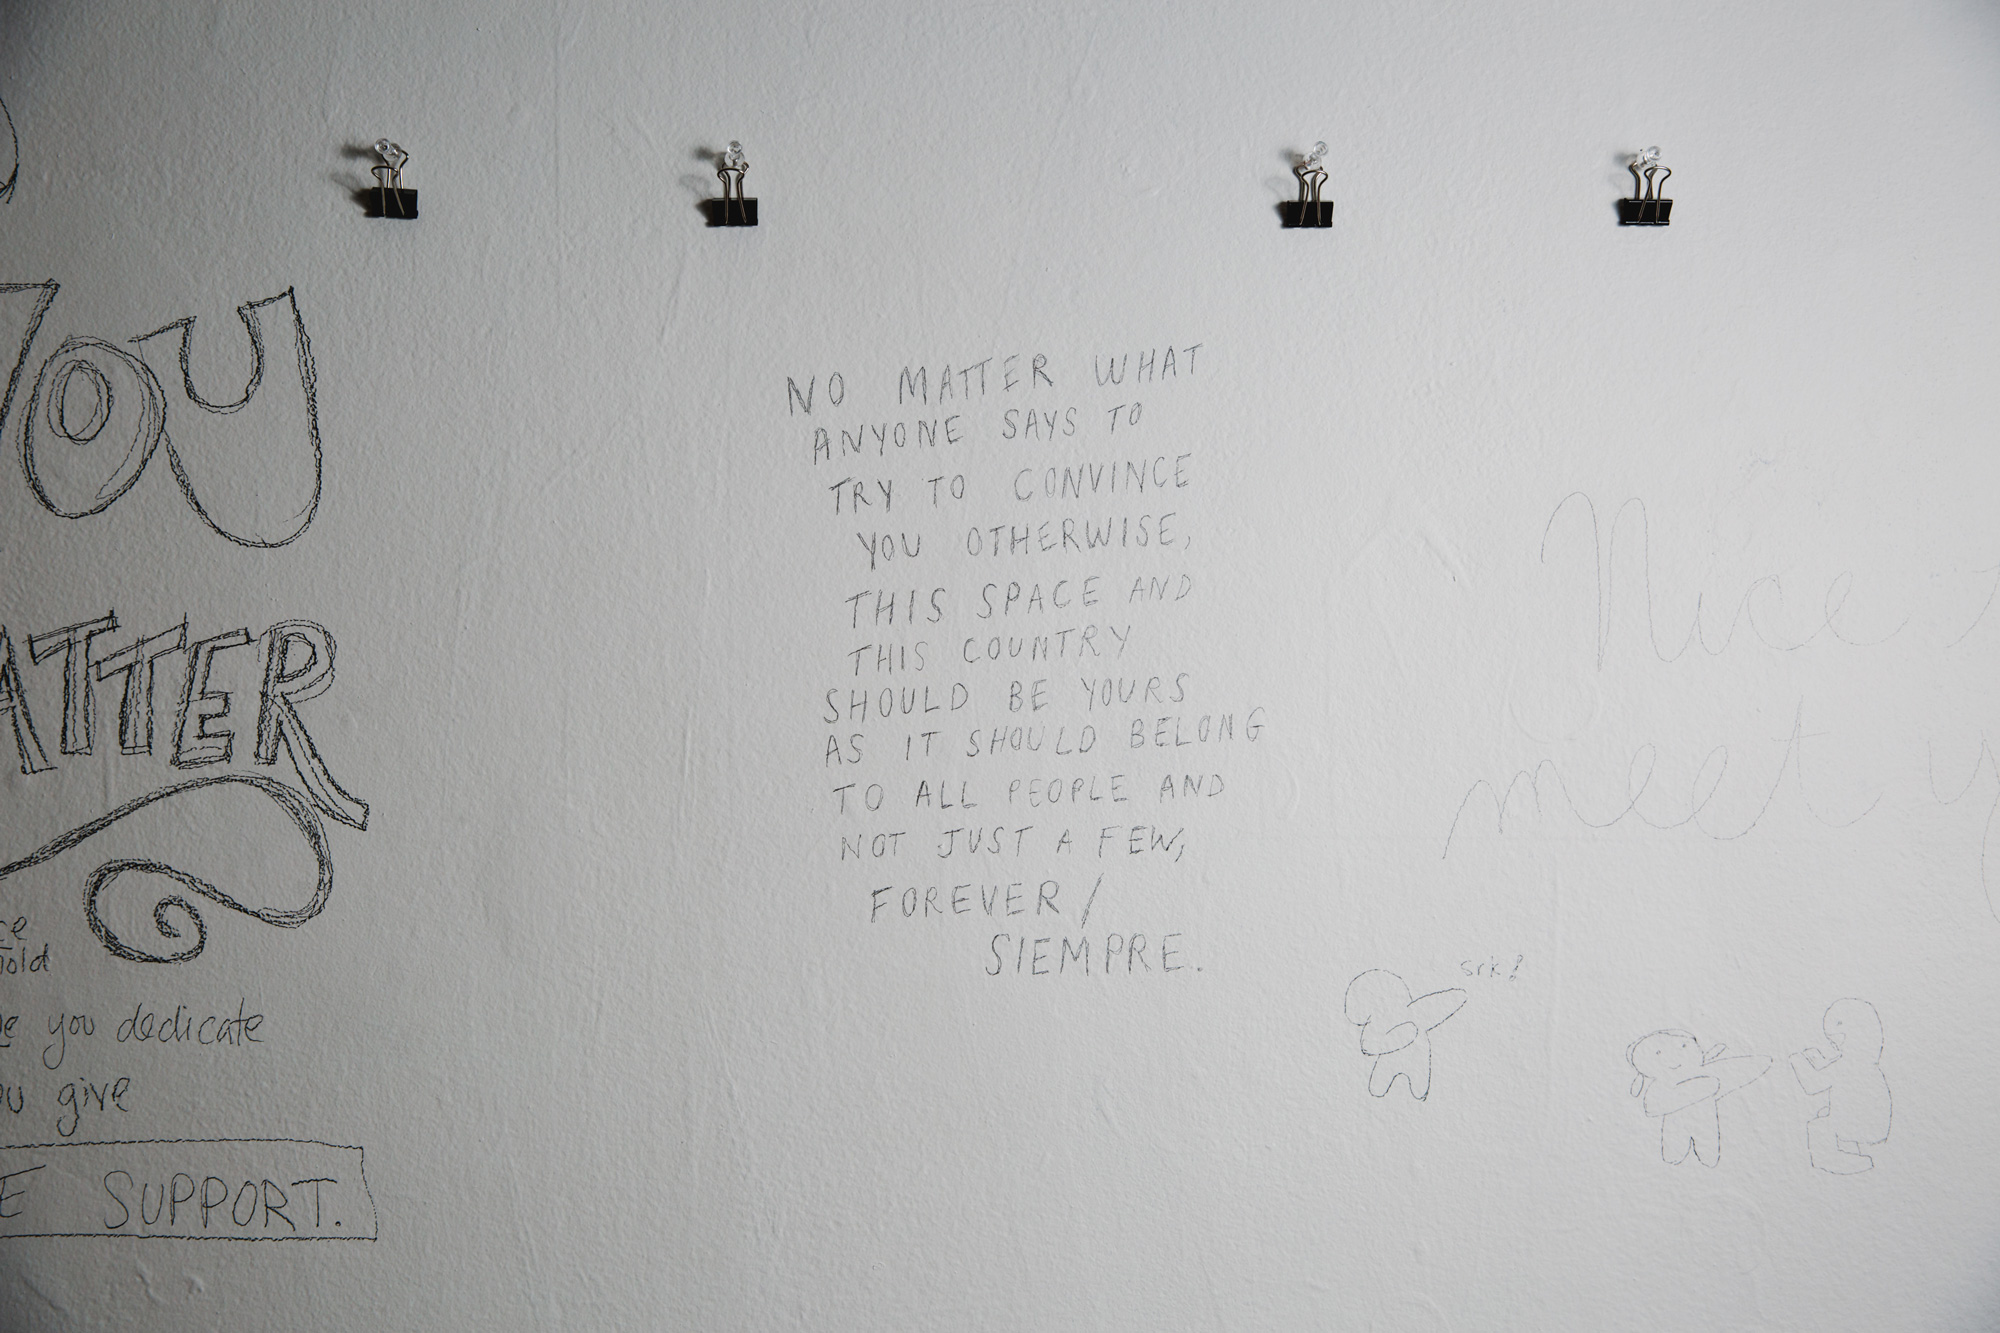 YOU
ATTER
ce
hold
you dedicate
give
SUPPORT.
NO MATTER WHAT
ANYONE SAYS TO
TRY TO CONVINCE
YOU OTHERWISE,
THIS SPACE AND
THIS COUNTRY
SHOULD BE YOURS
AS IT SHOULD BELONG
TO ALL PEOPLE AND
NOT JUST A FEW,
FOREVER /
SIEMPRE.
Nice
meet y
srk!